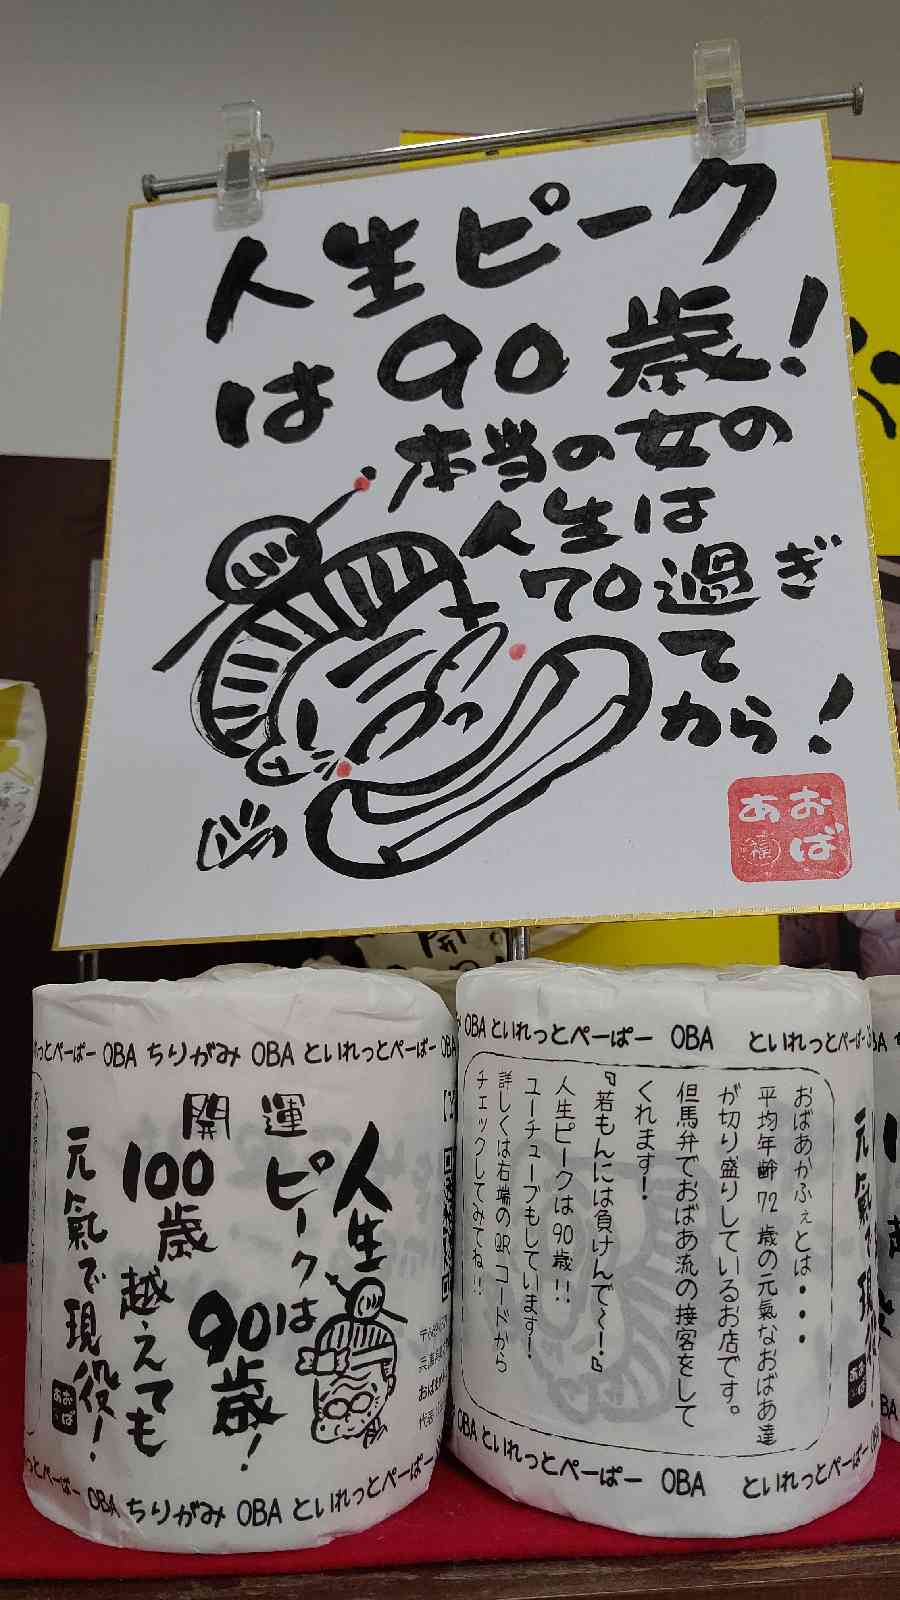 人生ピーク
は90歳!
本当の女の
人生は
70過ぎ
て
から!
おば
あ福
OBA ちりがみ OBA といれっとぺーぱー
開運
人生
ピークは
90歳!
100歳
越えても
元氣で現役!
おば
あ
OBA ちりがみ OBA といれっとぺーぱー
OBA といれっとぺーぱー OBA といれっとぺーぱー
おばあかふぇとは・・・・
平均年齢72歳の元氣なおばあ達
が切り盛りしているお店です。
但馬弁でおばあ流の接客をして
くれます!
『若もんには負けんで〜!』
人生ピークは90歳!!
ユーチューブもしています!
詳しくは右端のQRコードから
チェックしてみてね!!
OBA といれっとぺーぱー OBA といれっとぺーぱー